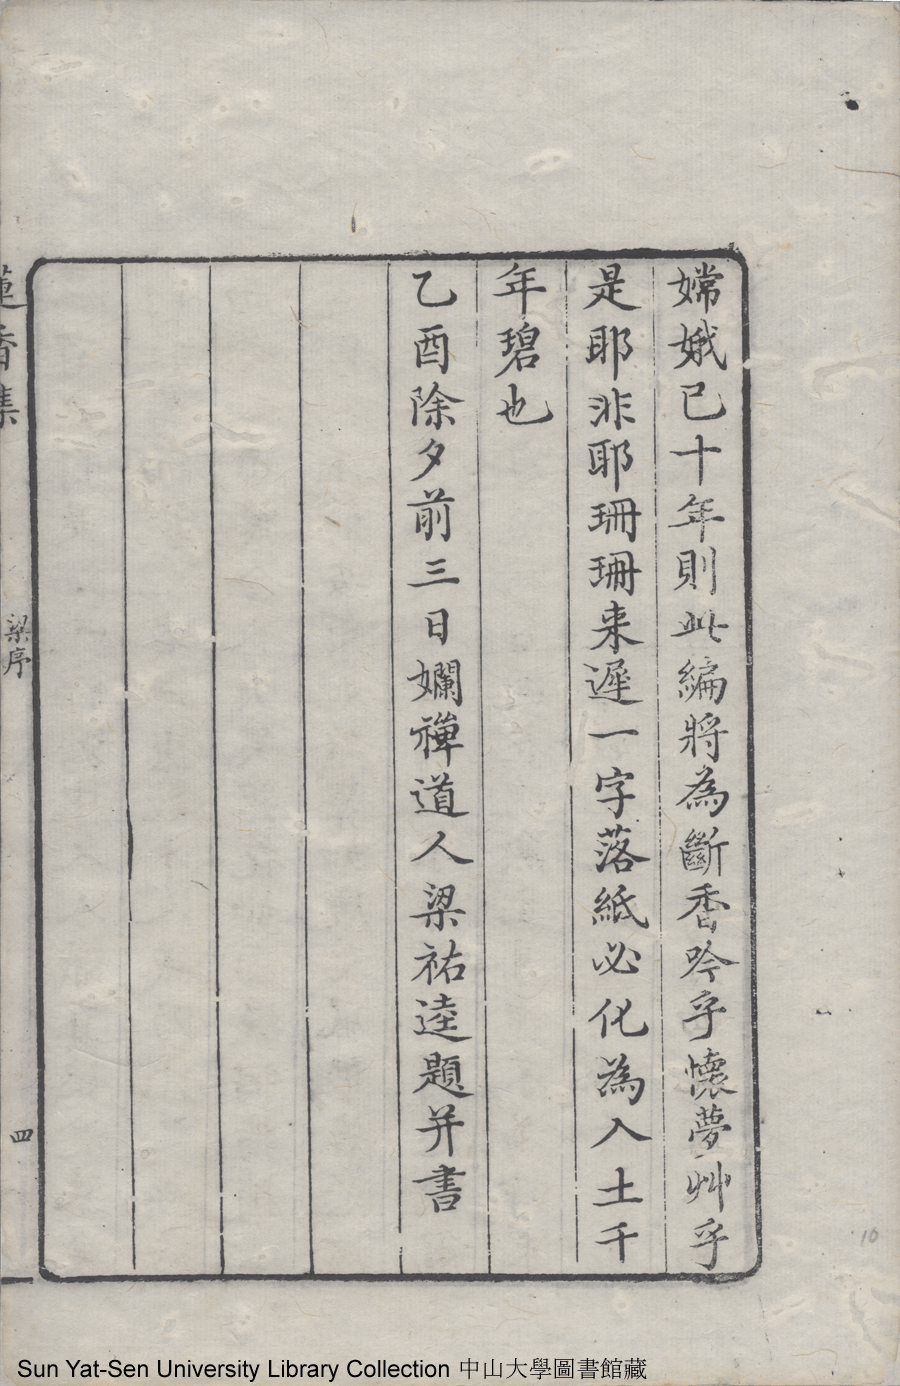 嫦娥已十年則此編將為斷香吟乎懷夢艸乎
是耶非耶珊珊来遲一字落紙必化為入土千
年碧也
乙酉除夕前三日嬾禪道人梁祐逵題并書
蓮香集
梁序
四
10
Sun Yat-Sen University Library Collection 中山大學圖書館藏